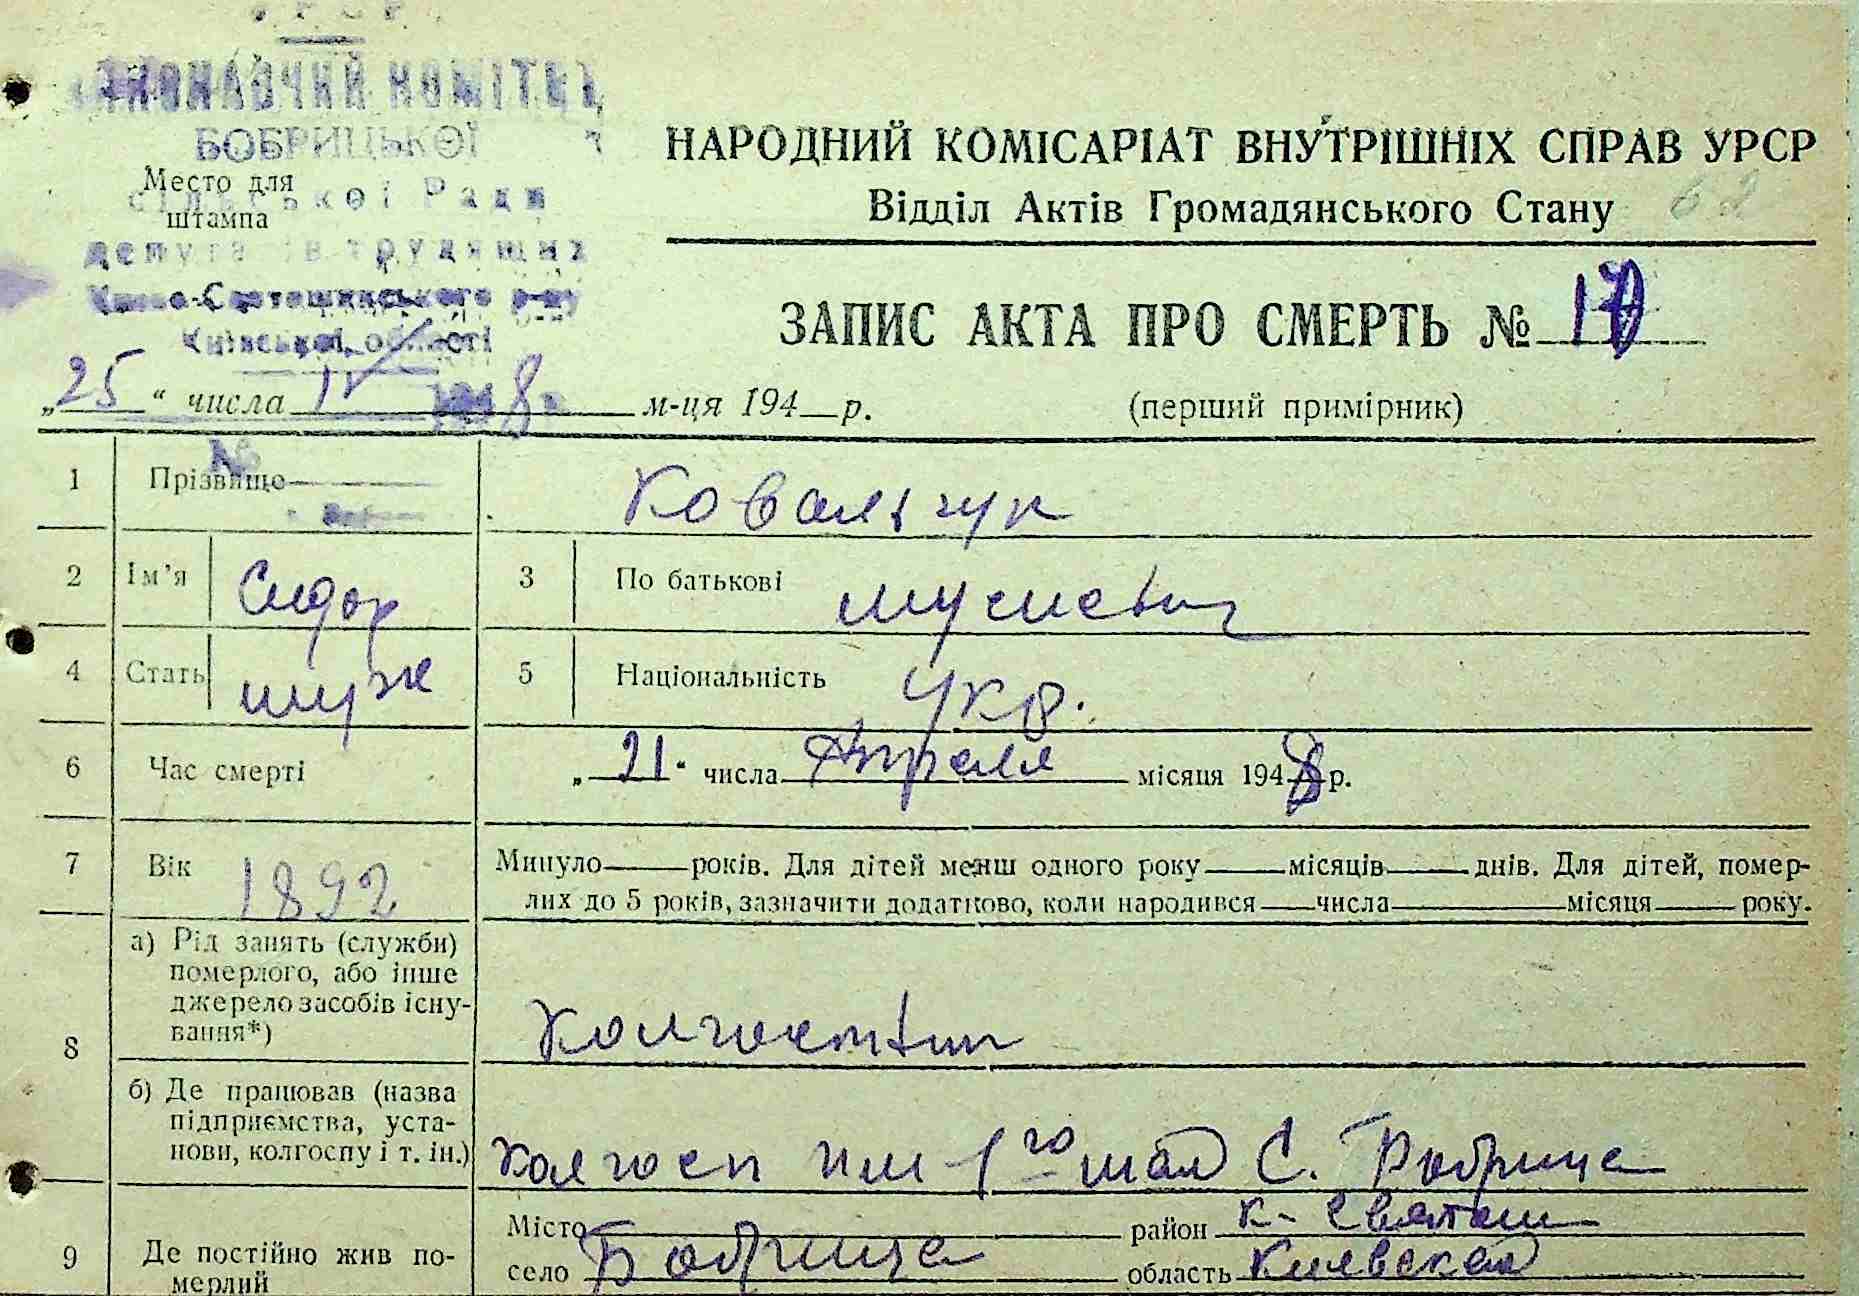 УРСР
ВИКОНАВЧИЙ КОМІТЕТ
БОБРИЦЬКОЇ
сільської Ради
депутатів трудящих
Києво-Святошинського р-ну
Київської області
Место для
штампа
НАРОДНИЙ КОМІСАРІАТ ВНУТРІШНІХ СПРАВ УРСР
Відділ Актів Громадянського Стану 62
ЗАПИС АКТА ПРО СМЕРТЬ № 17
„25“ числа IV 1948 м-ця 194 р. (перший примірник)
№
1 Прізвище Ковальчук
2 Ім’я Сидор 3 По батькові Мусиевич
4 Стать муж 5 Національність Укр.
6 Час смерті „21“ числа Апреля місяця 1948 р.
7 Вік 1892 Минуло років. Для дітей менш одного року місяців днів. Для дітей, помер-
лих до 5 років, зазначити додатково, коли народився числа місяця року.
8 а) Рід занять (служби)
померлого, або інше
джерело засобів існу-
вання*) Колгоспник
б) Де працював (назва
підприємства, уста-
нови, колгоспу і т. ін.) колгосп им 1го мая С. Бобрице
9 Де постійно жив по-
мерлий
Місто район К-Святош
село Бобрице область Киевская